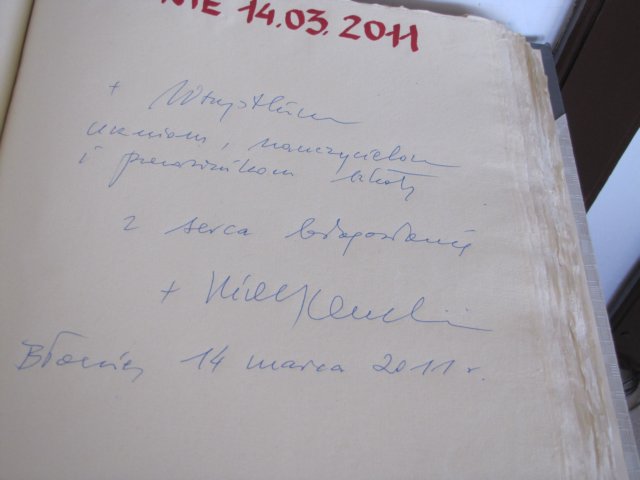 NIE 14.03.2011
+ Wszystkim
uczniom, nauczycielom
i pracownikom szkoły
z serca błogosławię
+
Błonie, 14 marca 2011 r.